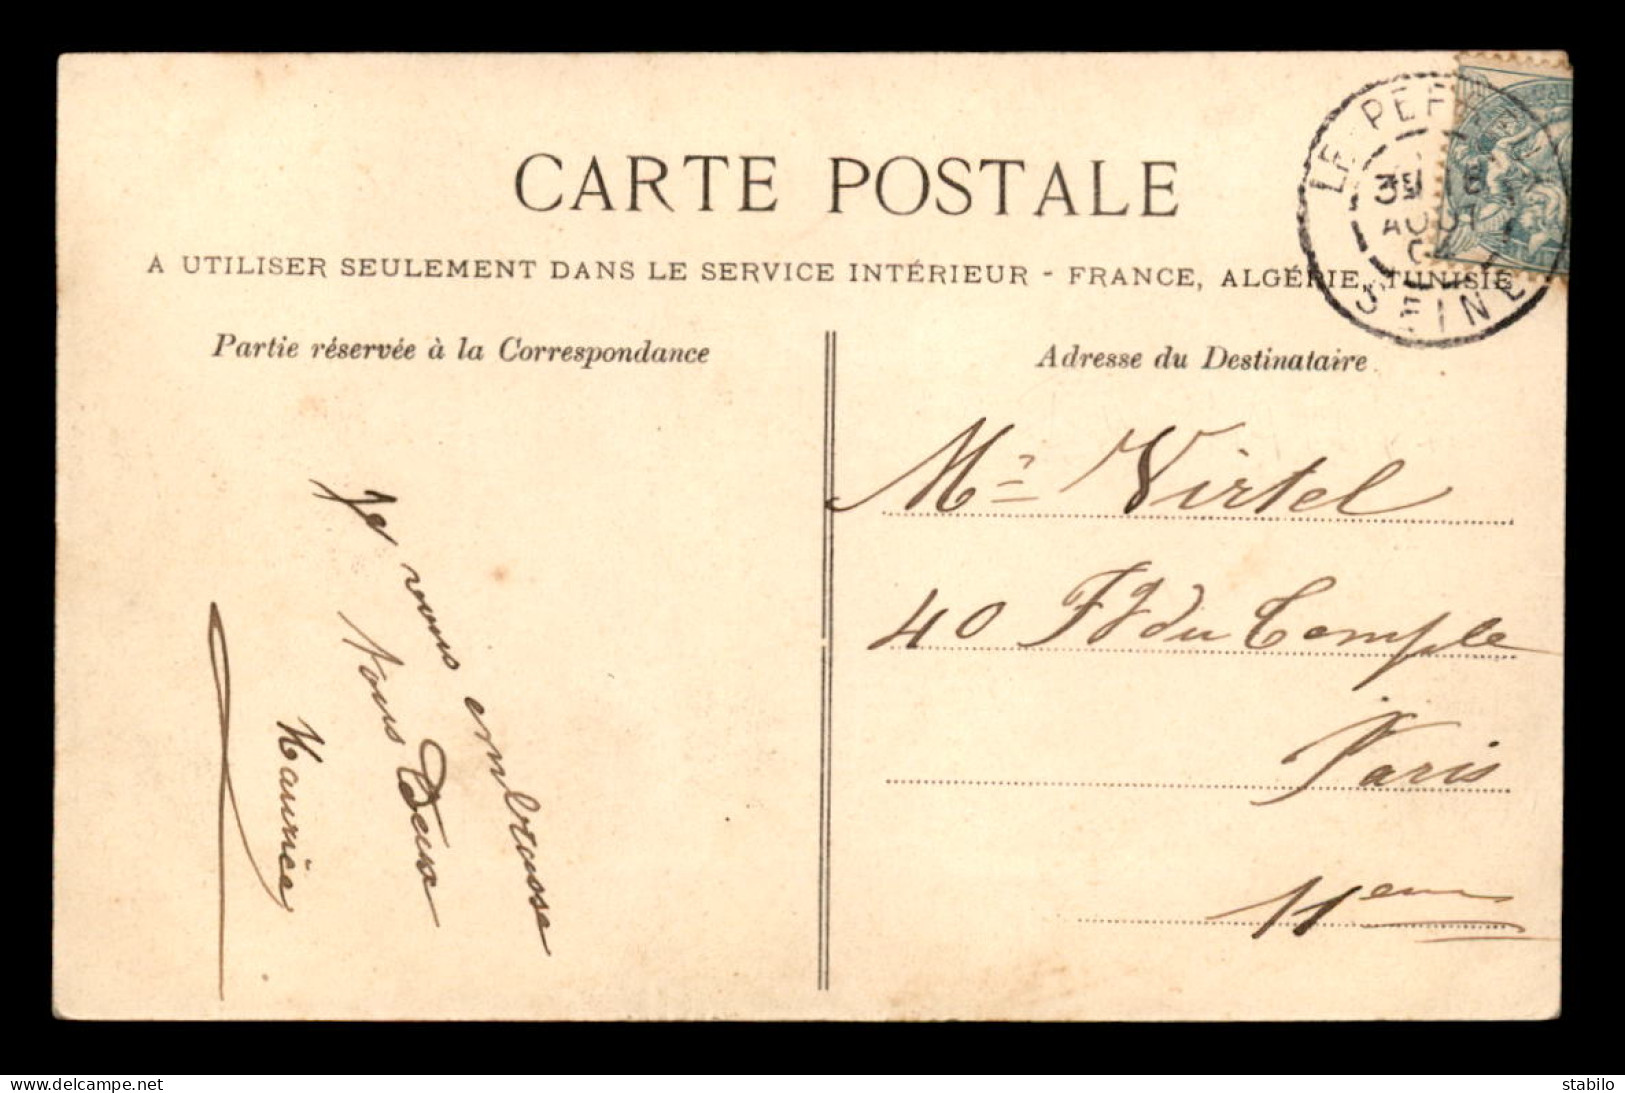 CARTE POSTALE
A UTILISER SEULEMENT DANS LE SERVICE INTÉRIEUR - FRANCE, ALGÉRIE, TUNISIE
Partie réservée à la Correspondance
Je vous embrasse
tous Deux
Maurice
Adresse du Destinataire
Mr Virtel
40 Fg du Temple
Paris
11eme
LE
AOUT
SEINE
www.delcampe.net
stabilo